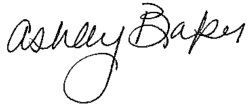 Ashley Baker